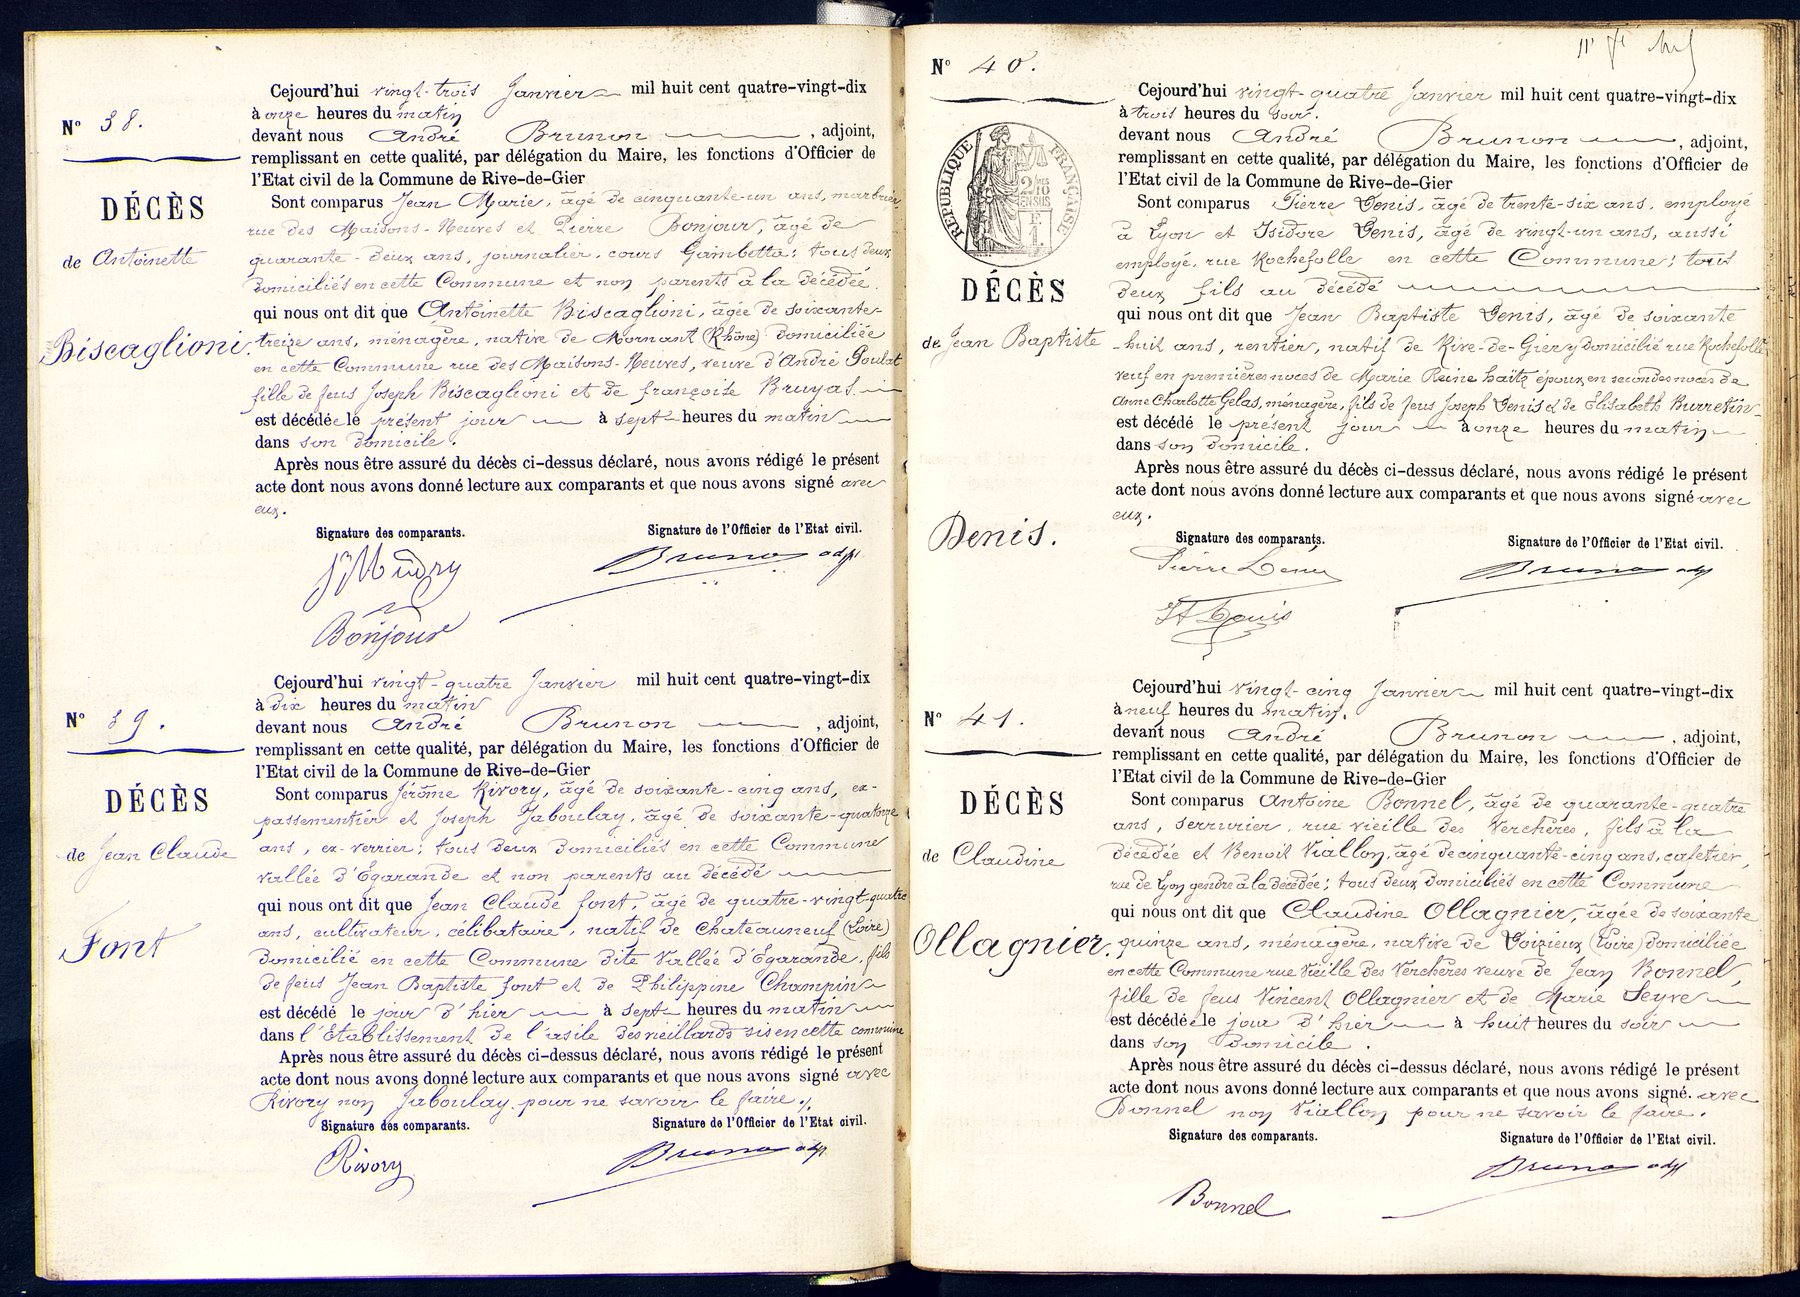 Cejourd'hui vingt-trois Janvier mil huit cent quatre-vingt-dix
à onze heures du matin
N° 38.
devant nous André Brunon, adjoint,
remplissant en cette qualité, par délégation du Maire, les fonctions d'Officier de
l'Etat civil de la Commune de Rive-de-Gier
DÉCÈS
de Antoinette
Biscaglioni.
Sont comparus Jean Marie, âgé de cinquante-un ans, marbrier,
rue des Maisons-Neuves et Pierre Bonjour, âgé de
quarante-deux ans, journalier, cours Gambetta; tous deux
domiciliés en cette Commune et non parents à la décédée.
qui nous ont dit que Antoinette Biscaglioni, âgée de soixante-
treize ans, ménagère, native de Mornant (Rhône) domiciliée
en cette Commune rue des Maisons-Neuves, veuve d'André Goulat
fille de feus Joseph Biscaglioni et de françoise Bruyas
est décédée le présent jour à sept heures du matin
dans son domicile.
Après nous être assuré du décès ci-dessus déclaré, nous avons rédigé le présent
acte dont nous avons donné lecture aux comparants et que nous avons signé avec
eux.
Signature des comparants. Signature de l'Officier de l'Etat civil.
Mudry Brunon adjt
Bonjour
Cejourd'hui vingt-quatre Janvier mil huit cent quatre-vingt-dix
à dix heures du matin
N° 39.
devant nous André Brunon, adjoint,
remplissant en cette qualité, par délégation du Maire, les fonctions d'Officier de
l'Etat civil de la Commune de Rive-de-Gier
DÉCÈS
de Jean Claude
Font
Sont comparus Jérôme Rivory, âgé de soixante-cinq ans, ex-
passementier et Joseph Jaboulay, âgé de soixante-quatorze
ans, ex-verrier; tous deux domiciliés en cette Commune
vallée d'Egarande et non parents au décédé
qui nous ont dit que Jean Claude font, âgé de quatre-vingt-quatre
ans, cultivateur, célibataire, natif de Chateauneuf (Loire)
domicilié en cette Commune dite Vallée d'Egarande, fils
de feus Jean Baptiste font et de Philippine Champin
est décédé le jour d'hier à sept heures du matin
dans l'Etablissement de l'asile des vieillards sis en cette commune
Après nous être assuré du décès ci-dessus déclaré, nous avons rédigé le présent
acte dont nous avons donné lecture aux comparants et que nous avons signé avec
Rivory non Jaboulay pour ne savoir le faire.
Signature des comparants. Signature de l'Officier de l'Etat civil.
Rivory Brunon adjt
N° 40.
Cejourd'hui vingt-quatre Janvier mil huit cent quatre-vingt-dix
à trois heures du soir.
devant nous André Brunon, adjoint,
remplissant en cette qualité, par délégation du Maire, les fonctions d'Officier de
l'Etat civil de la Commune de Rive-de-Gier
RÉPUBLIQUE FRANÇAISE
2/10
EN SUS
1 F
DÉCÈS
de Jean Baptiste
Denis.
Sont comparus Pierre Denis, âgé de trente-six ans, employé
à Lyon et Isidore Denis, âgé de vingt-un ans, aussi
employé, rue Rochefolle en cette Commune; tous
deux fils au décédé
qui nous ont dit que Jean Baptiste Denis, âgé de soixante
-huit ans, rentier, natif de Rive-de-Gier y domicilié rue Rochefolle
veuf en premières noces de Marie Reine haïtz époux en secondes noces de
Anne Charlotte Gelas, ménagère, fils de feus Joseph Denis et de Elisabeth Burretin
est décédé le présent jour à onze heures du matin
dans son domicile.
Après nous être assuré du décès ci-dessus déclaré, nous avons rédigé le présent
acte dont nous avons donné lecture aux comparants et que nous avons signé avec
eux.
Signature des comparants. Signature de l'Officier de l'Etat civil.
Pierre Denis Brunon adjt
Cejourd'hui vingt-cinq Janvier mil huit cent quatre-vingt-dix
à neuf heures du matin.
N° 41.
devant nous André Brunon, adjoint,
remplissant en cette qualité, par délégation du Maire, les fonctions d'Officier de
l'Etat civil de la Commune de Rive-de-Gier
DÉCÈS
de Claudine
Ollagnier.
Sont comparus Antoine Bonnel, âgé de quarante-quatre
ans, serrurier, rue vieille des Verchères, fils à la
décédée et Benoit Viallon, âgé de cinquante-cinq ans, cafetier,
rue de Lyon gendre à la décédée; tous deux domiciliés en cette Commune
qui nous ont dit que Claudine Ollagnier, âgée de soixante
quinze ans, ménagère, native de Doizieux (Loire) domiciliée
en cette Commune rue Vieille des Verchères veuve de Jean Bonnel,
fille de feus Vincent Ollagnier et de Marie Seyve
est décédée le jour d'hier à huit heures du soir
dans son domicile.
Après nous être assuré du décès ci-dessus déclaré, nous avons rédigé le présent
acte dont nous avons donné lecture aux comparants et que nous avons signé. avec
Bonnel non Viallon pour ne savoir le faire.
Signature des comparants. Signature de l'Officier de l'Etat civil.
Bonnel Brunon adjt